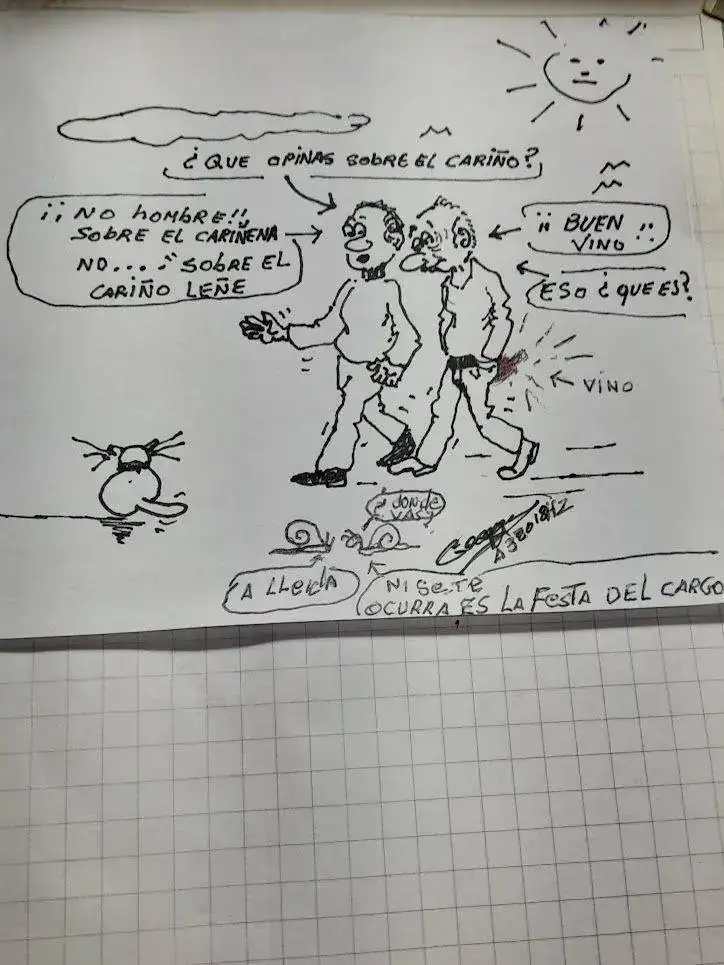 ¿QUE OPINAS SOBRE EL CARIÑO?
¡¡NO HOMBRE!!
SOBRE EL CARIÑENA
NO... SOBRE EL
CARIÑO LEÑE
¡¡ BUEN
VINO !!
ESO ¿QUE ES?
VINO
¿DONDE
VAS?
A LLEIDA
NI SE TE
OCURRA ES LA FESTA DEL CARGO